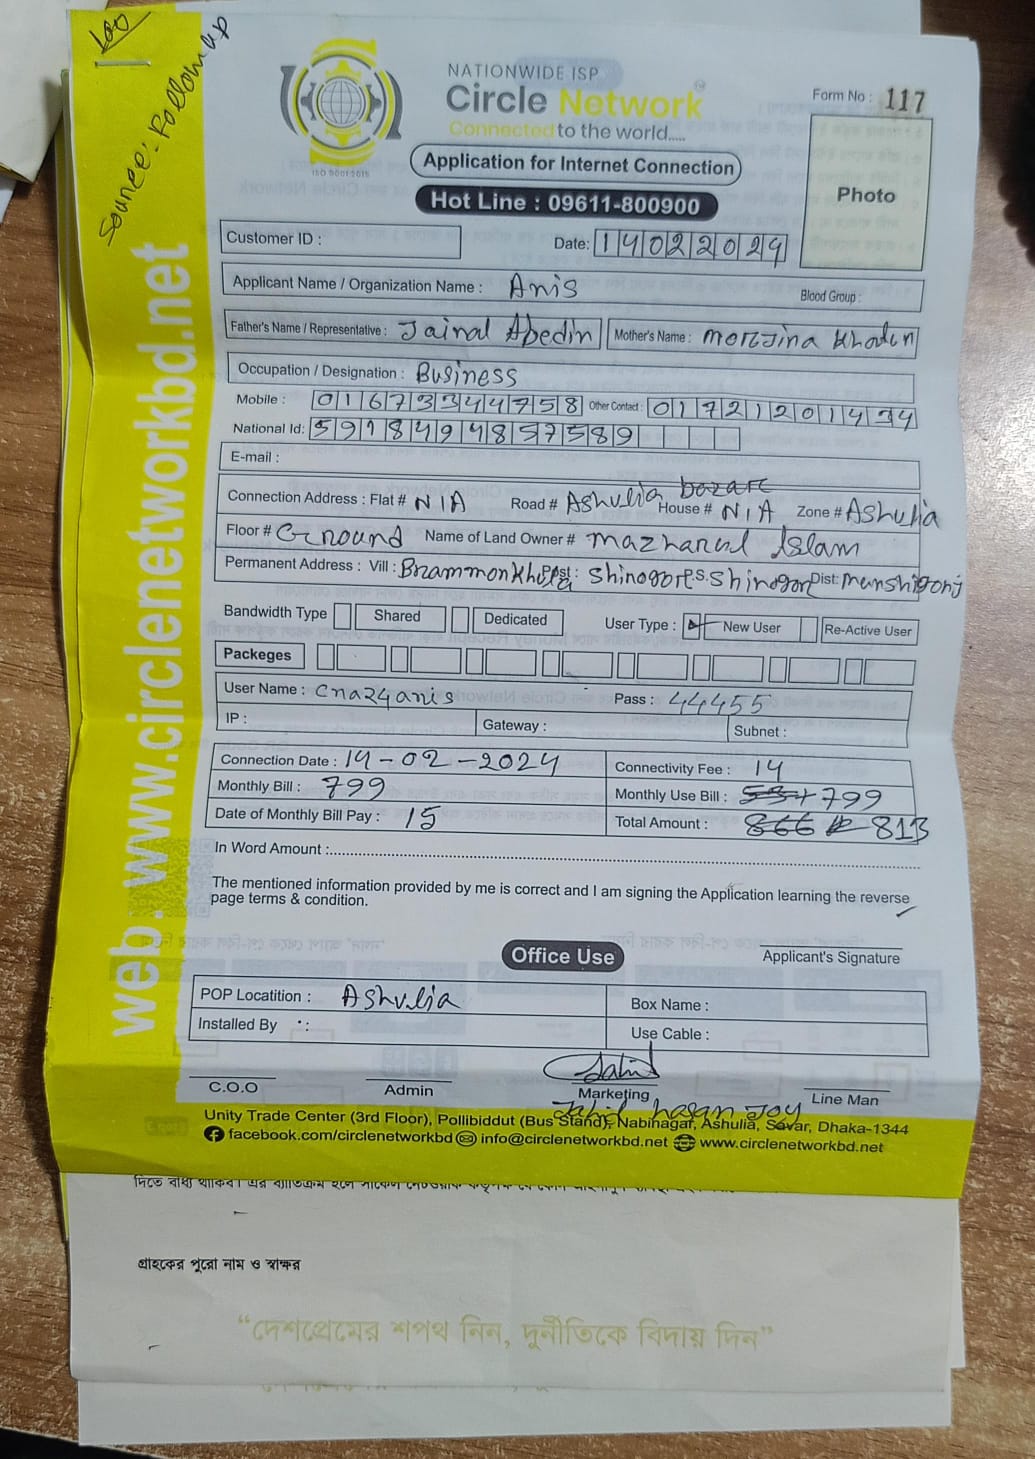 100
Source: Follow up
web: www.circlenetworkbd.net
NATIONWIDE ISP
Circle Network
Connected to the world.....
ISO 9001:2015
Form No : 117
Photo
Application for Internet Connection
Hot Line : 09611-800900
Customer ID :
Date: 14022024
Applicant Name / Organization Name : Anis
Blood Group :
Father's Name / Representative : Jainal Abedin Mother's Name : Morzina Khatun
Occupation / Designation : Business
Mobile : 01673344758 Other Contact : 01721201434
National Id: 5918494857589
E-mail :
Connection Address : Flat # N/A Road # Ashulia bazare House # N/A Zone # Ashulia
Floor # Ground Name of Land Owner # Mazharul Islam
Permanent Address : Vill : Brammonkhola Post : Shinogor P.S. Shinogor Dist: Munshigonj
Bandwidth Type Shared Dedicated User Type : New User Re-Active User
Packeges
User Name : cna24anis Pass : 44455
IP : Gateway : Subnet :
Connection Date : 14-02-2024 Connectivity Fee : 14
Monthly Bill : 799 Monthly Use Bill : 799
Date of Monthly Bill Pay : 15 Total Amount : 866 813
In Word Amount :
The mentioned information provided by me is correct and I am signing the Application learning the reverse
page terms & condition.
Applicant's Signature
Office Use
POP Locatition : Ashulia Box Name :
Installed By : Use Cable :
Jahid
C.O.O Admin Marketing Line Man
Jahid hasan Joy
Unity Trade Center (3rd Floor), Pollibiddut (Bus Stand), Nabinagar, Ashulia, Savar, Dhaka-1344
facebook.com/circlenetworkbd info@circlenetworkbd.net www.circlenetworkbd.net
গ্রাহকের পুরো নাম ও স্বাক্ষর
“দেশপ্রেমের শপথ নিন, দুর্নীতিকে বিদায় দিন”